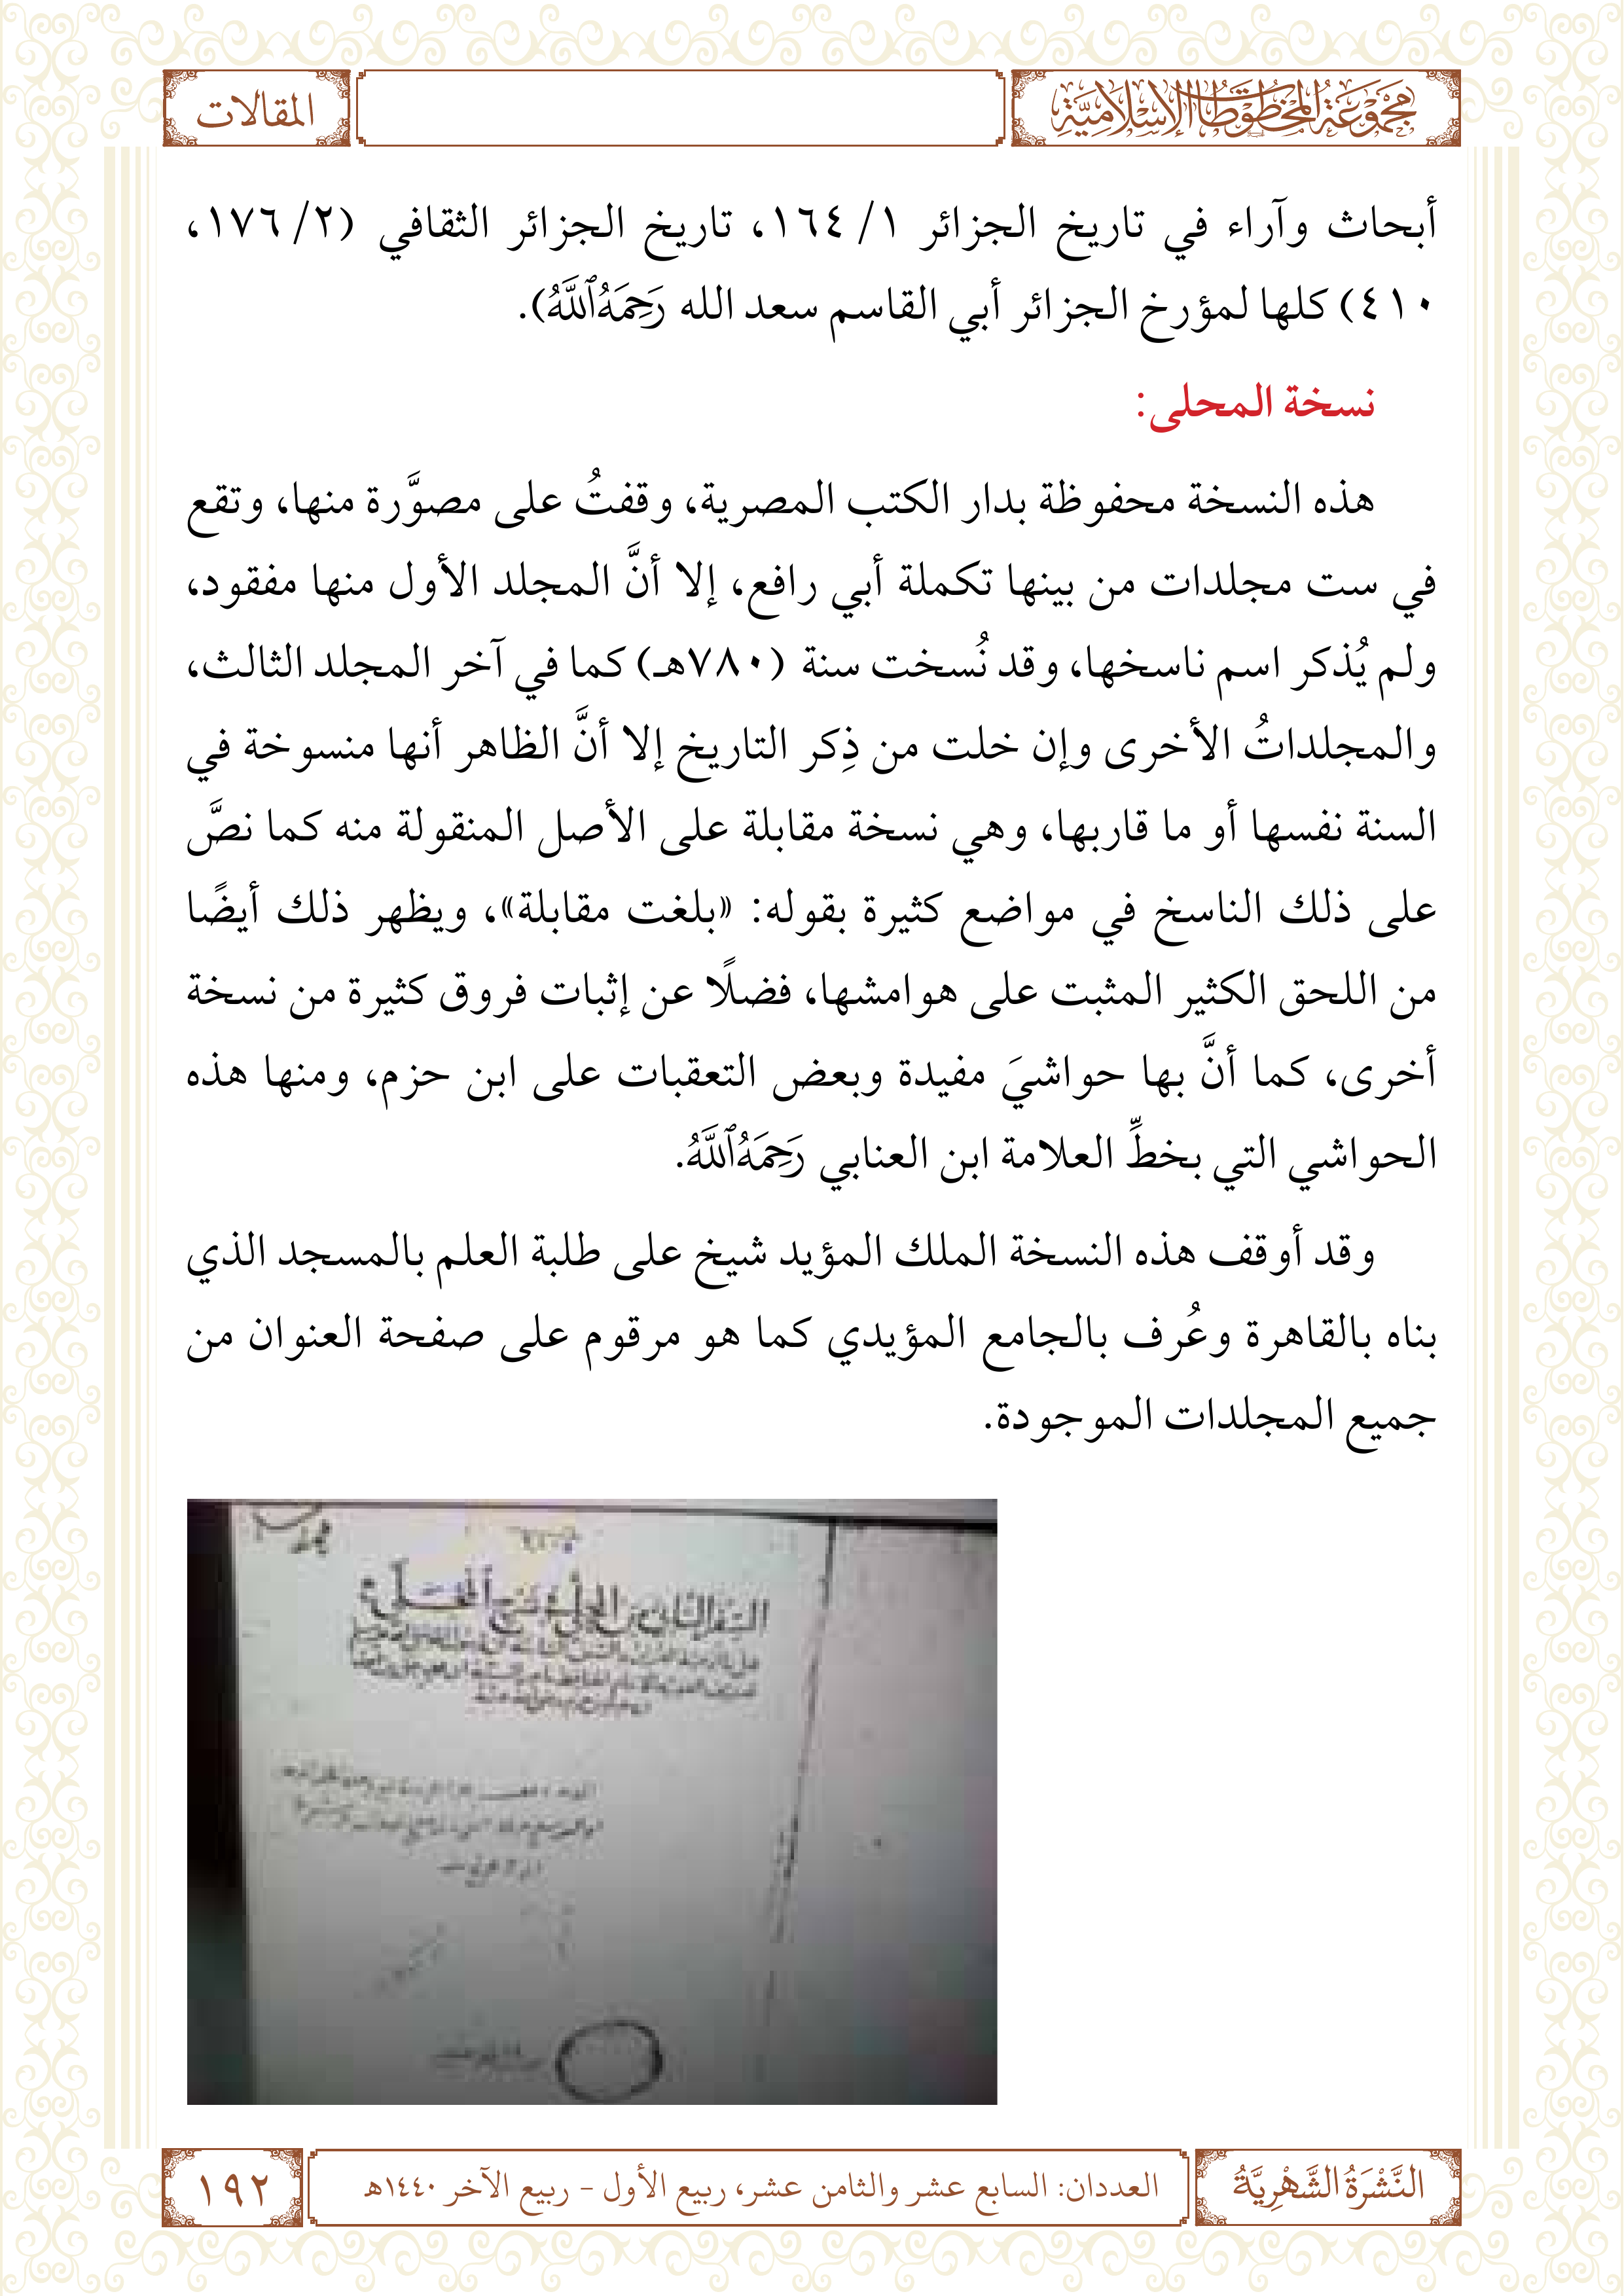 مَجْمُوعَةُ المَخْطُوطَاتِ الإِسْلَامِيَّةِ
المقالات
أبحاث وآراء في تاريخ الجزائر ١/ ١٦٤، تاريخ الجزائر الثقافي (٢/ ١٧٦،
٤١٠) كلها لمؤرخ الجزائر أبي القاسم سعد الله رَحِمَهُ ٱللَّهُ).
نسخة المحلى:
هذه النسخة محفوظة بدار الكتب المصرية، وقفتُ على مصوَّرة منها، وتقع
في ست مجلدات من بينها تكملة أبي رافع، إلا أنَّ المجلد الأول منها مفقود،
ولم يُذكر اسم ناسخها، وقد نُسخت سنة (٧٨٠هـ) كما في آخر المجلد الثالث،
والمجلداتُ الأخرى وإن خلت من ذِكر التاريخ إلا أنَّ الظاهر أنها منسوخة في
السنة نفسها أو ما قاربها، وهي نسخة مقابلة على الأصل المنقولة منه كما نصَّ
على ذلك الناسخ في مواضع كثيرة بقوله: «بلغت مقابلة»، ويظهر ذلك أيضًا
من اللحق الكثير المثبت على هوامشها، فضلًا عن إثبات فروق كثيرة من نسخة
أخرى، كما أنَّ بها حواشيَ مفيدة وبعض التعقبات على ابن حزم، ومنها هذه
الحواشي التي بخطِّ العلامة ابن العنابي رَحِمَهُ ٱللَّهُ.
وقد أوقف هذه النسخة الملك المؤيد شيخ على طلبة العلم بالمسجد الذي
بناه بالقاهرة وعُرف بالجامع المؤيدي كما هو مرقوم على صفحة العنوان من
جميع المجلدات الموجودة.
السفر الثاني من المحلى شرح المجلى
النَّشْرَةُ الشَّهْرِيَّةُ
العددان: السابع عشر والثامن عشر، ربيع الأول - ربيع الآخر ١٤٤٠هـ
١٩٢